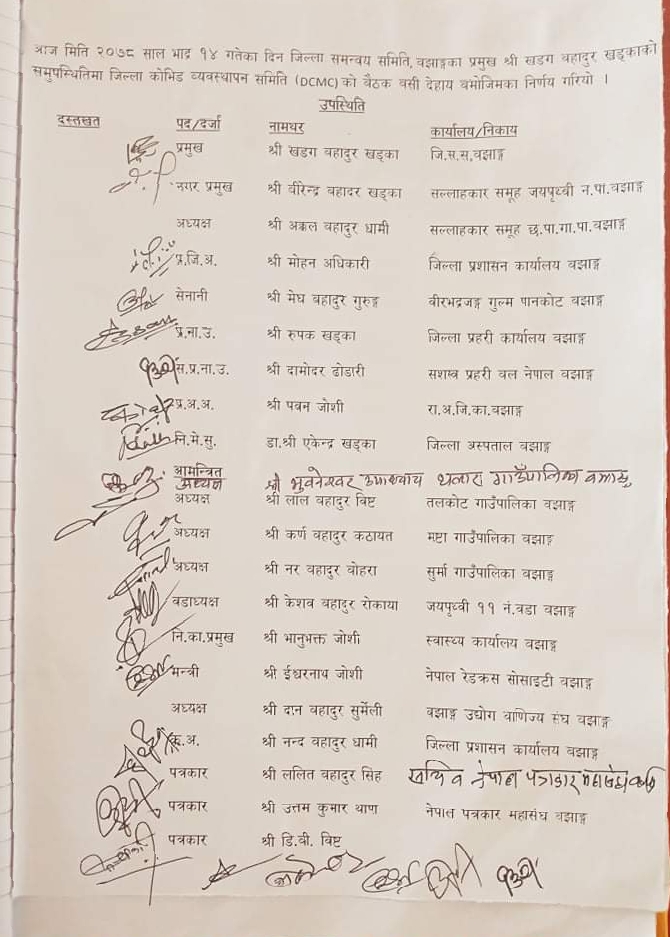 आज मिति २०७८ साल भाद्र १४ गतेका दिन जिल्ला समन्वय समिति, वझाङ्गका प्रमुख श्री खडग वहादुर खड्काको
समुपस्थितिमा जिल्ला कोभिड व्यवस्थापन समिति (DCMC) को बैठक वसी देहाय वमोजिमका निर्णय गरियो ।
उपस्थिति
दस्तखत पद/दर्जा नामथर कार्यालय/निकाय
प्रमुख श्री खडग वहादुर खड्का जि.स.स.वझाङ्ग
नगर प्रमुख श्री वीरेन्द्र वहादर खड्का सल्लाहकार समूह जयपृथ्वी न.पा.वझाङ्ग
अध्यक्ष श्री अक्कल वहादुर धामी सल्लाहकार समूह छ.पा.गा.पा.वझाङ्ग
प्र.जि.अ. श्री मोहन अधिकारी जिल्ला प्रशासन कार्यालय वझाङ्ग
सेनानी श्री मेघ बहादुर गुरुङ्ग वीरभद्रजङ्ग गुल्म पानकोट वझाङ्ग
प्र.ना.उ. श्री रुपक खड्का जिल्ला प्रहरी कार्यालय वझाङ्ग
स.प्र.ना.उ. श्री दामोदर ढोडारी सशस्त्र प्रहरी वल नेपाल वझाङ्ग
प्र.अ.अ. श्री पवन जोशी रा.अ.जि.का.वझाङ्ग
नि.मे.सु. डा.श्री एकेन्द्र खड्का जिल्ला अस्पताल वझाङ्ग
आमन्त्रित
अध्यक्ष श्री भुवनेश्वर उपाध्याय थलारा गाउँपालिका
अध्यक्ष श्री लाल वहादुर विष्ट तलकोट गाउँपालिका वझाङ्ग
अध्यक्ष श्री कर्ण वहादुर कठायत मष्टा गाउँपालिका वझाङ्ग
अध्यक्ष श्री नर वहादुर वोहरा सुर्मा गाउँपालिका वझाङ्ग
वडाध्यक्ष श्री केशव बहादुर रोकाया जयपृथ्वी ११ नं.वडा वझाङ्ग
नि.का.प्रमुख श्री भानुभक्त जोशी स्वास्थ्य कार्यालय वझाङ्ग
मन्त्री श्री ईश्वरनाथ जोशी नेपाल रेडक्रस सोसाइटी वझाङ्ग
अध्यक्ष श्री दान वहादुर सुर्मेली वझाङ्ग उद्योग वाणिज्य संघ वझाङ्ग
क.अ. श्री नन्द वहादुर धामी जिल्ला प्रशासन कार्यालय वझाङ्ग
पत्रकार श्री ललित बहादुर सिंह सचिव नेपाल पत्रकार महासंघ
पत्रकार श्री उत्तम कुमार थापा नेपाल पत्रकार महासंघ वझाङ्ग
पत्रकार श्री डि.वी. विष्ट